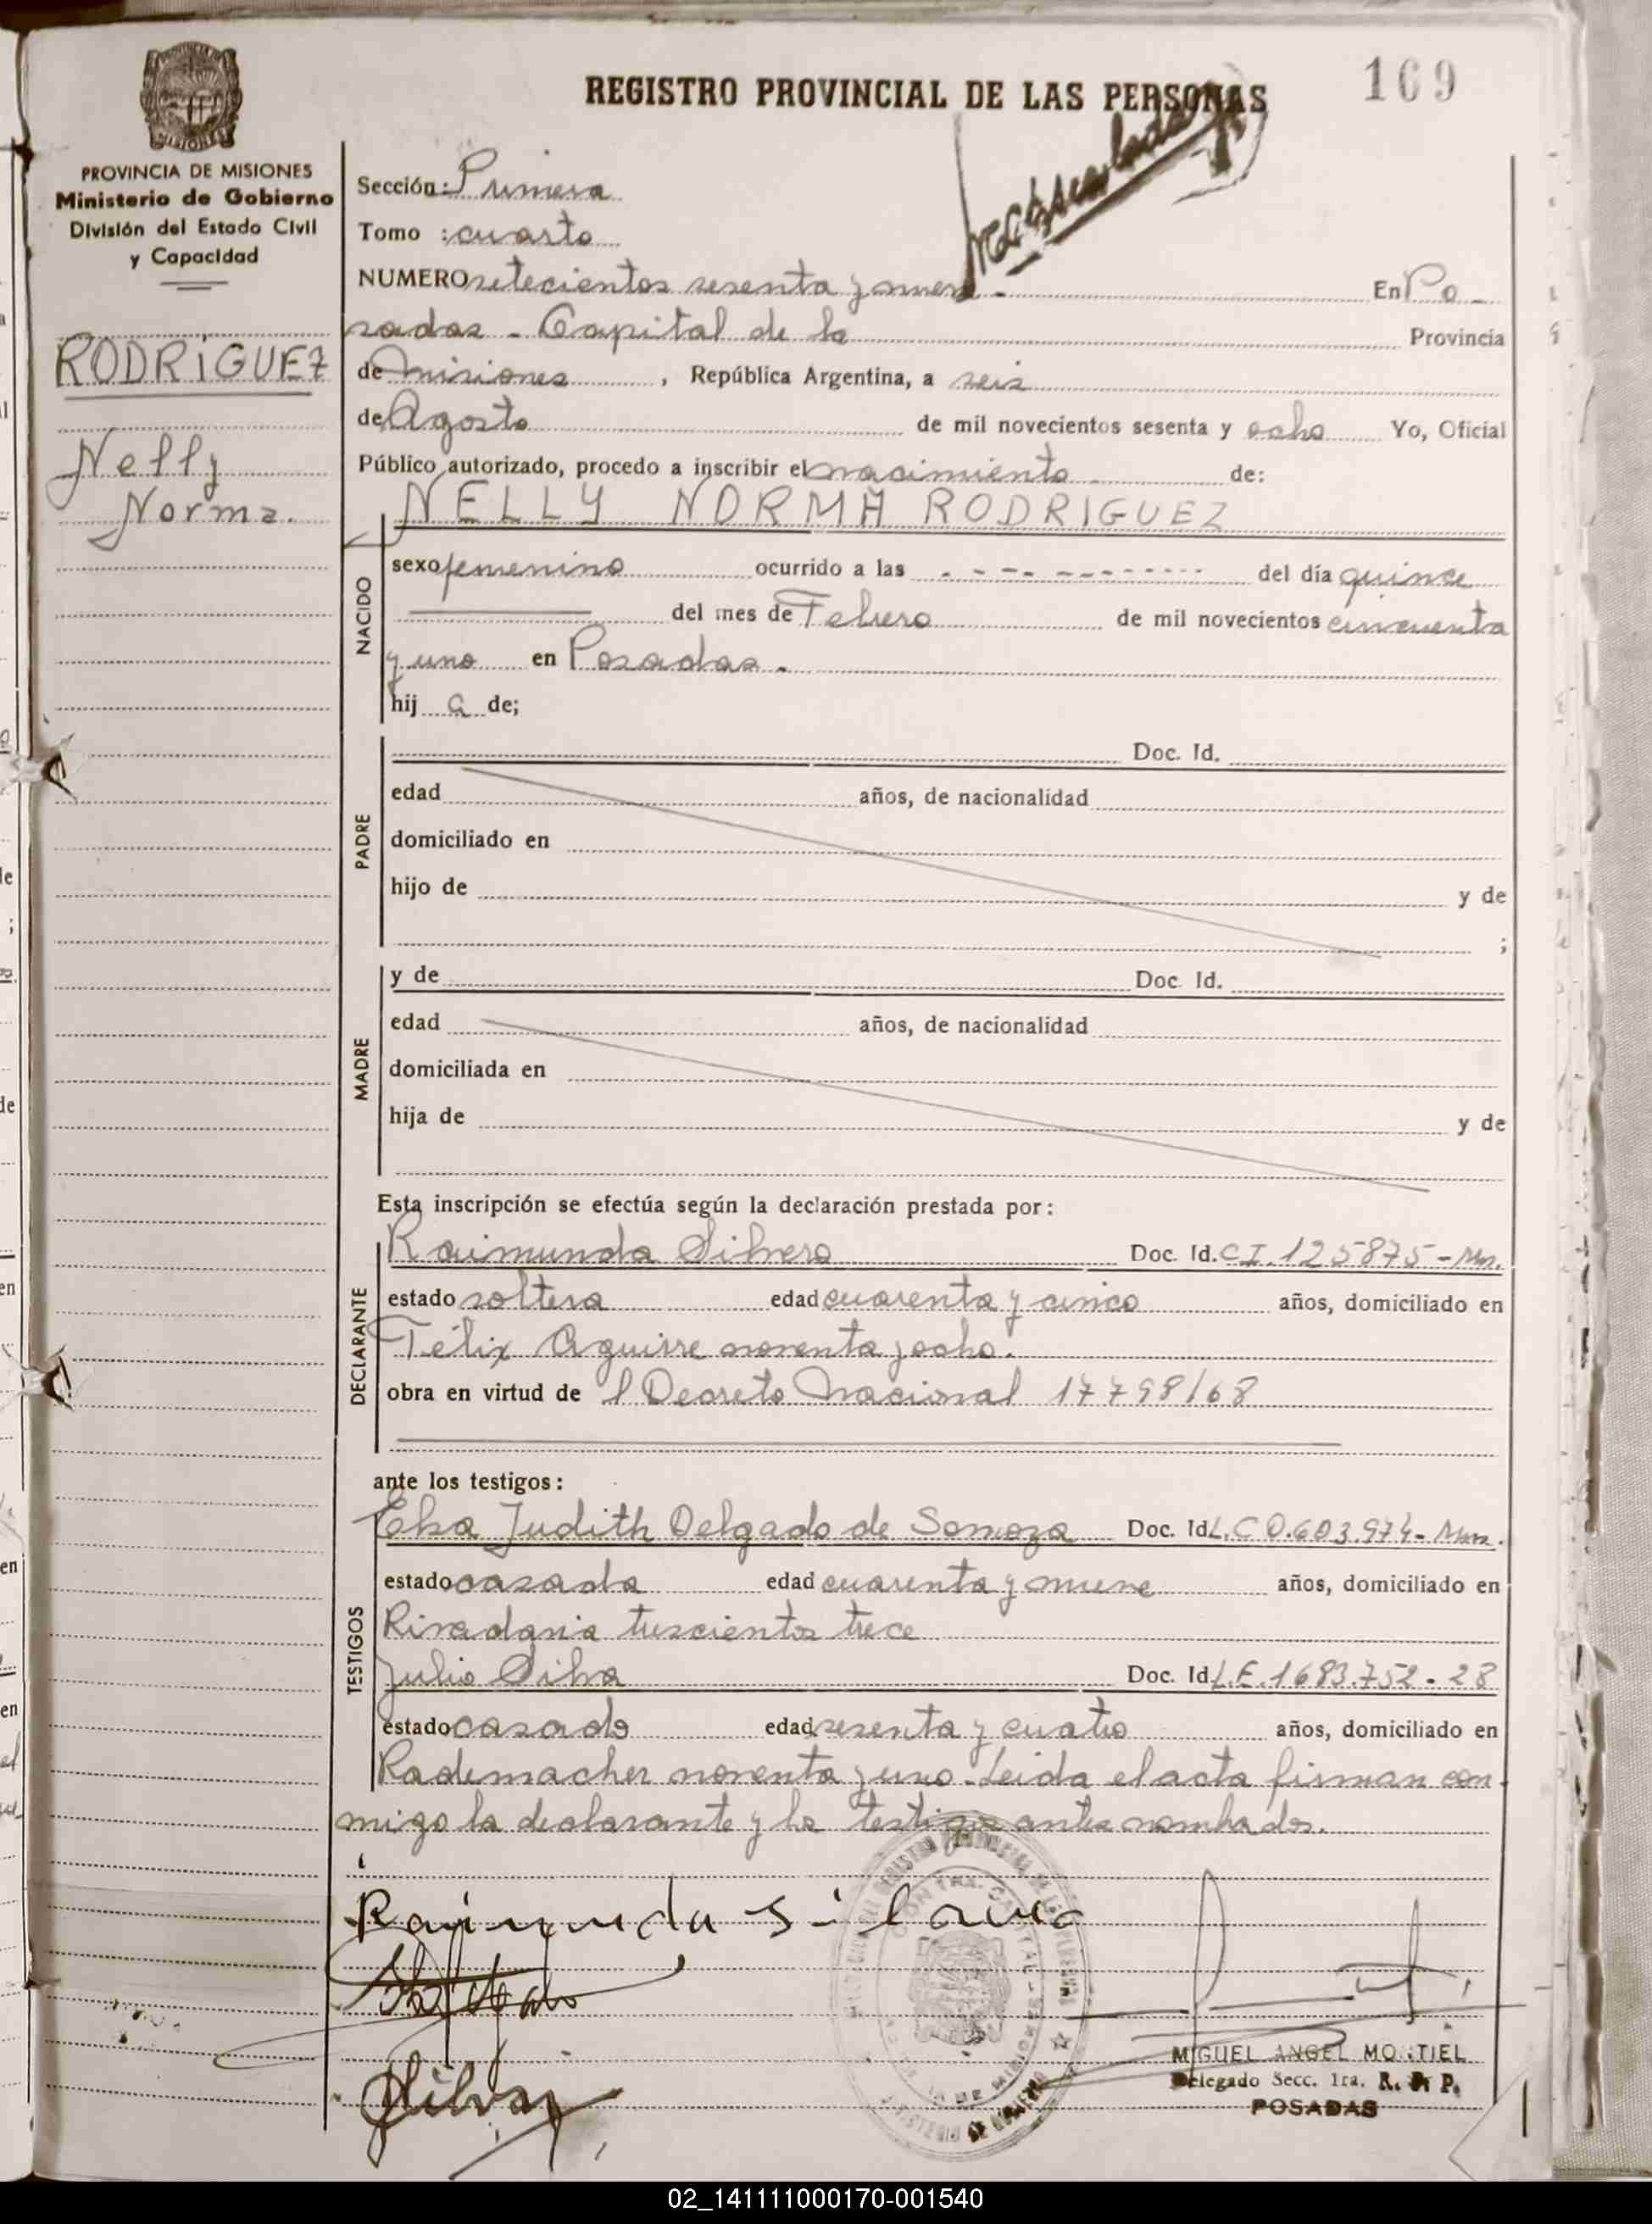 REGISTRO PROVINCIAL DE LAS PERSONAS
169
MISIONES
PROVINCIA DE MISIONES
Ministerio de Gobierno
División del Estado Civil
y Capacidad
RODRIGUEZ
Nelly
Norma.
Sección: Primera
Tomo : cuarto
NUMERO setecientos sesenta y nueve - En Po-
sadas - Capital de la Provincia
de Misiones , República Argentina, a seis
de Agosto de mil novecientos sesenta y ocho Yo, Oficial
Público autorizado, procedo a inscribir el nacimiento de:
NELLY NORMA RODRIGUEZ
NACIDO
sexo femenino ocurrido a las - - - - - - - - - - del día quince
del mes de Febrero de mil novecientos cincuenta
y uno en Posadas.
hij a de;
PADRE
Doc. Id.
edad años, de nacionalidad
domiciliado en
hijo de y de
;
MADRE
y de Doc. Id.
edad años, de nacionalidad
domiciliada en
hija de y de
Esta inscripción se efectúa según la declaración prestada por:
DECLARANTE
Raimunda Silvero Doc. Id. C.I. 125875 - Mns.
estado soltera edad cuarenta y cinco años, domiciliado en
Félix Aguirre noventa y ocho.
obra en virtud de l Decreto Nacional 17798/68
ante los testigos:
TESTIGOS
Elsa Judith Delgado de Somoza Doc. Id L.C 0.603.974 - Mns.
estado casada edad cuarenta y nueve años, domiciliado en
Rivadavia trescientos trece
Julio Silva Doc. Id L.E. 1683.752 - 28
estado casado edad sesenta y cuatro años, domiciliado en
Rademacher noventa y uno. Leida el acta firman con-
migo la declarante y los testigos antes nombrados.
Raimunda
Silva
MIGUEL ANGEL MONTIEL
Delegado Secc. 1ra. R. P. P.
POSADAS
02_141111000170-001540